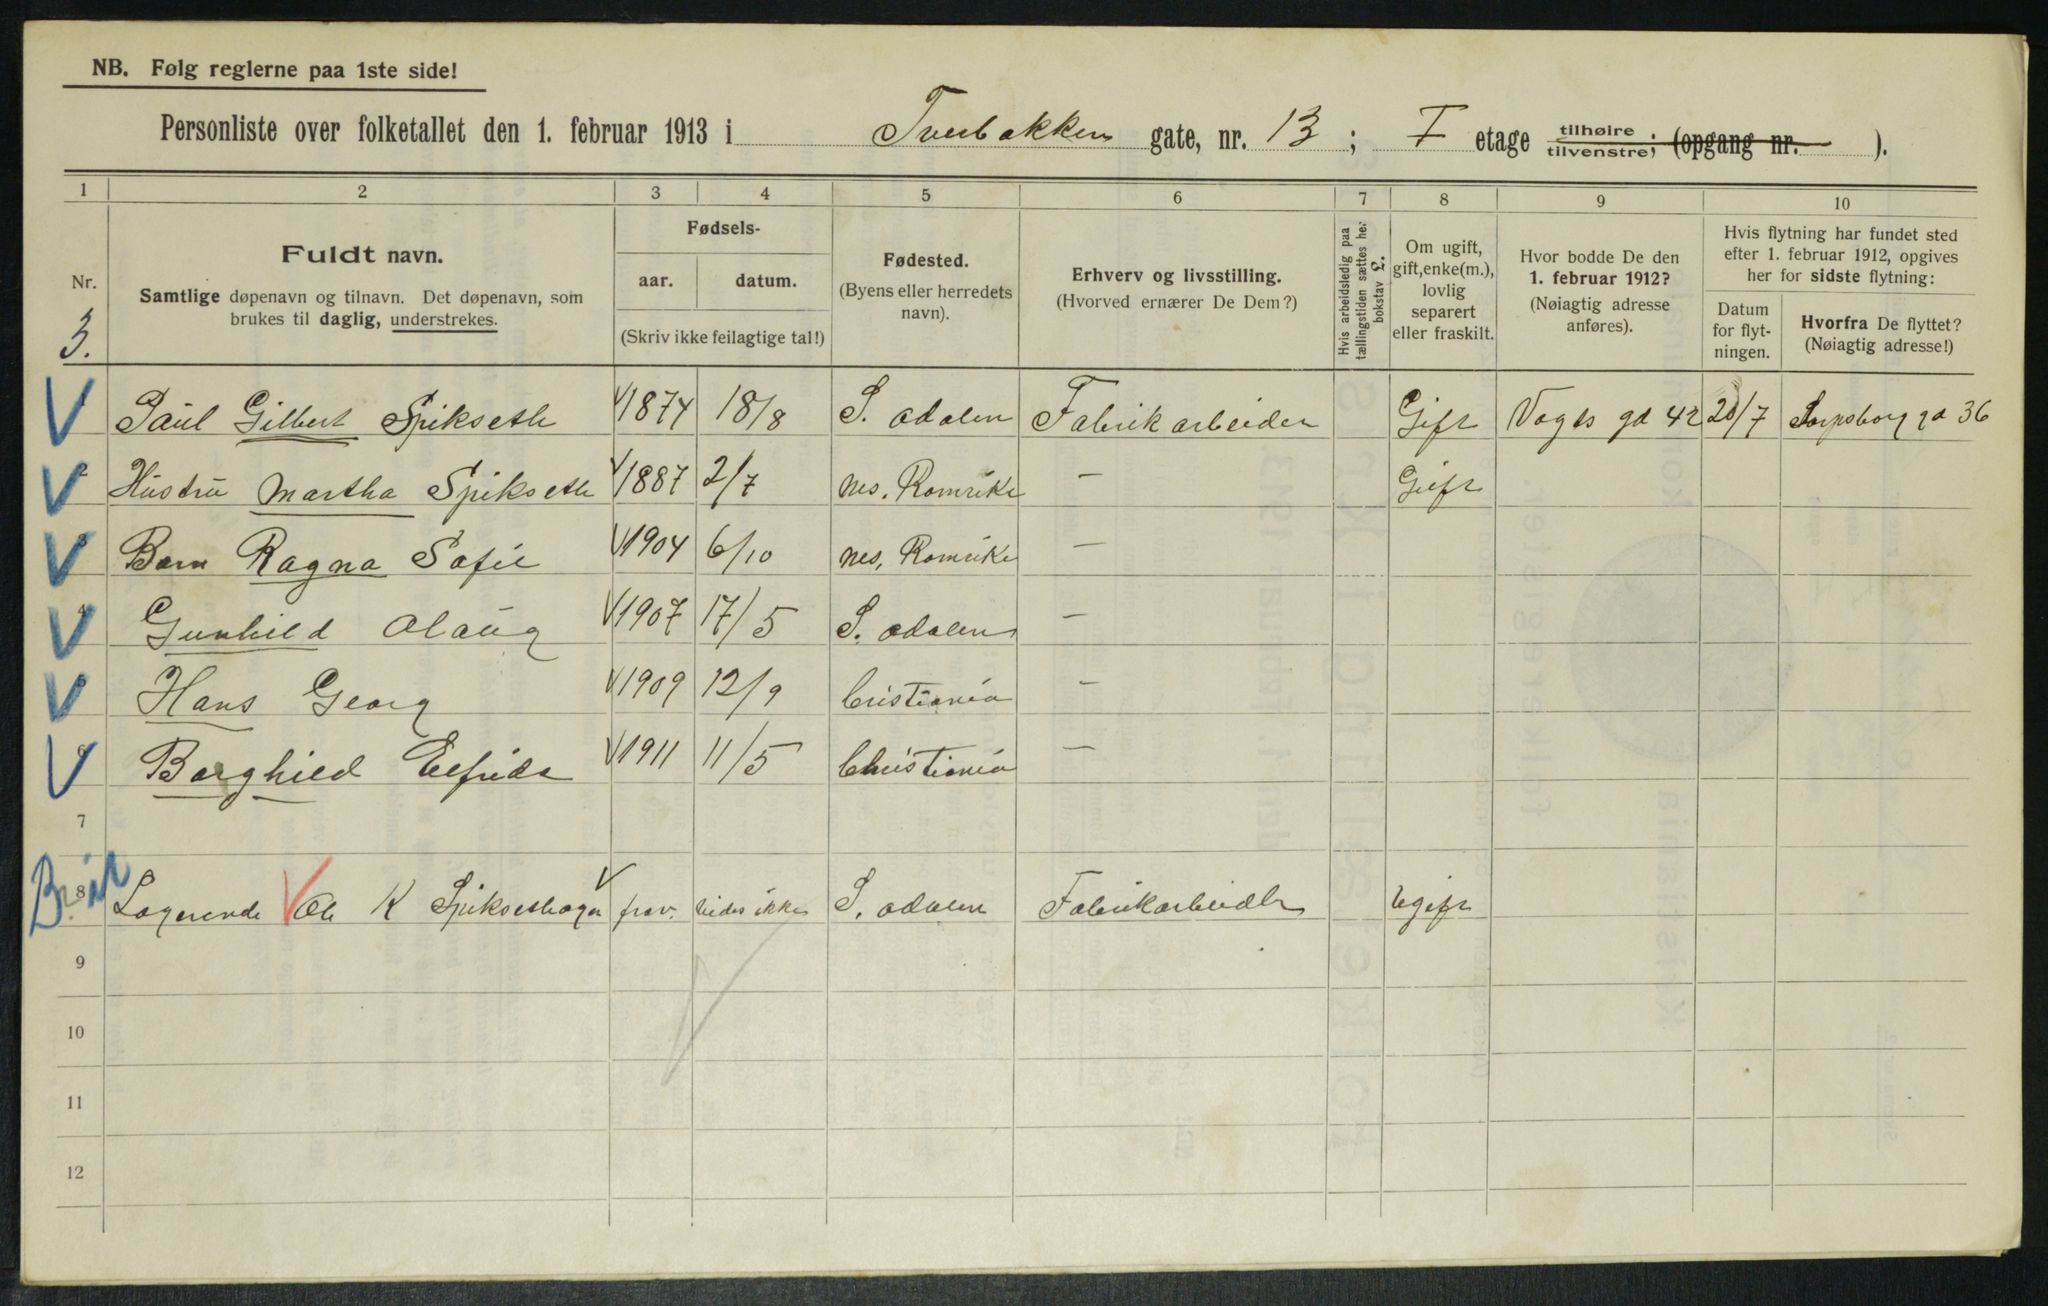 NB. Følg reglerne paa 1ste side!
Personliste over folketallet den 1. februar 1913 i Tverbakken gate, nr. 13 ; I etage tilhøire tilvenstre; (opgang nr. ).
1 2 3 4 5 6 7 8 9 10
Nr.
3.
Fuldt navn.
Samtlige døpenavn og tilnavn. Det døpenavn, som
brukes til daglig, understrekes.
Fødsels-
aar. datum.
(Skriv ikke feilagtige tal!)
Fødested.
(Byens eller herredets
navn).
Erhverv og livsstilling.
(Hvorved ernærer De Dem?)
Hvis arbeidsledig paa
tællingstiden sættes her
bokstav L.
Om ugift,
gift, enke(m.),
lovlig
separert
eller fraskilt.
Hvor bodde De den
1. februar 1912?
(Nøiagtig adresse
anføres).
Hvis flytning har fundet sted
efter 1. februar 1912, opgives
her for sidste flytning:
Datum
for flyt-
ningen.
Hvorfra De flyttet?
(Nøiagtig adresse!)
1 Paul Gilbert Spikseth 1874 18/8 S. odalen Fabrikarbeider Gift Vogts gd 42 20/7 Sarpsborg gd 36
2 Hustru Martha Spikseth 1887 2/7 nes. Romrike - Gift
3 Barn Ragna Sofie 1904 6/10 nes, Romrike -
4 Gunhild Olaug 1907 17/5 S. odalen -
5 Hans Georg 1909 12/9 Cristiania -
6 Borghild Elfrida 1911 11/5 Christiania -
7
8 Logerende Ole K Spiksethagen S. odalen Fabrikarbeider Ugift
9
10
11
12